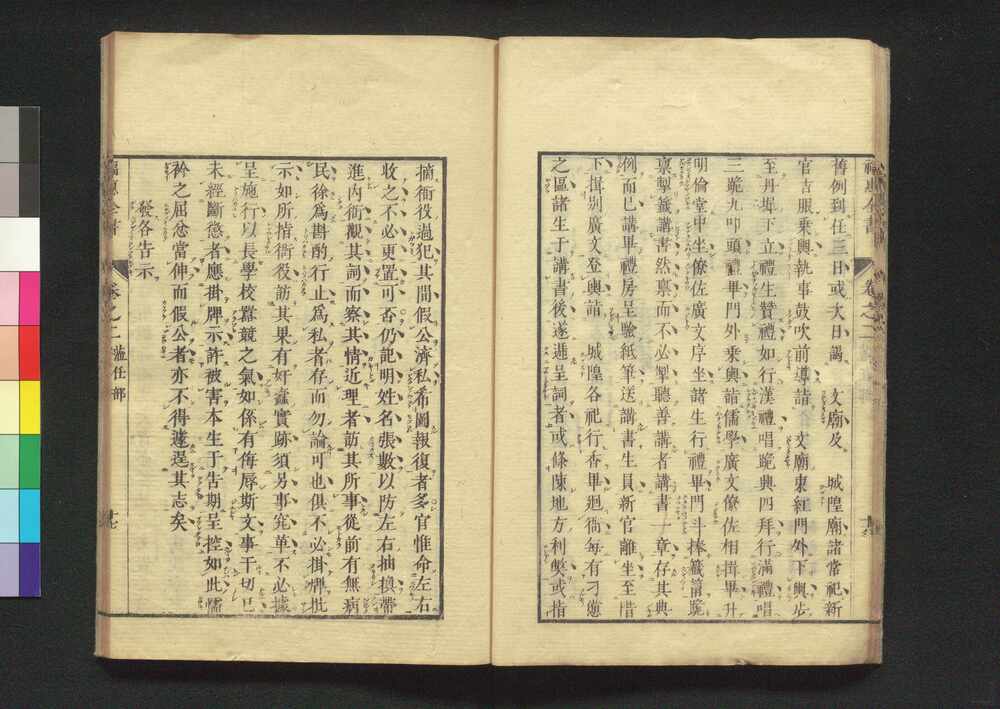 舊例到任三日或大日謁　文廟及　城隍廟諸常祀新
官吉服乘輿執事鼓吹前導詣　文廟東紅門外下輿步
至丹墀下立禮生贊禮如行漢禮唱跪興四拜行滿禮唱
三跪九叩頭禮畢門外乘輿詣儒學廣文僚佐相揖畢升
明倫堂中坐僚佐廣文序坐諸生行禮畢門斗捧籤筩跪
禀掣籤講書然禀而不必掣聽善講者講書一章存其典
例而已講畢禮房呈驗紙筆送講書生員新官離坐至堦
下揖別廣文登輿詣　城隍各祀行香畢廻衙每有刁憊
之區諸生于講書後遂遞呈詞者或條陳地方利獘或指
摘衙役過犯其間假公濟私希圖報復者多官惟命左右
收之不必更置可否仍記明姓名張數以防左右抽換帶
進內衙觀其詞而察其情近理者訪其所事從前有無病
民徐爲斟酌行止爲私者存而勿論可也俱不必掛牌批
示如所指衙役訪其果有奸蠹實跡須另事究革不必據
呈施行以長學校囂競之氣如係有侮辱斯文事干切已
未經斷懲者應掛牌示許被害本生于告期呈控如此懦
衿之屈忿當伸而假公者亦不得遽逞其志矣
發各告示
卷之二　蒞任部